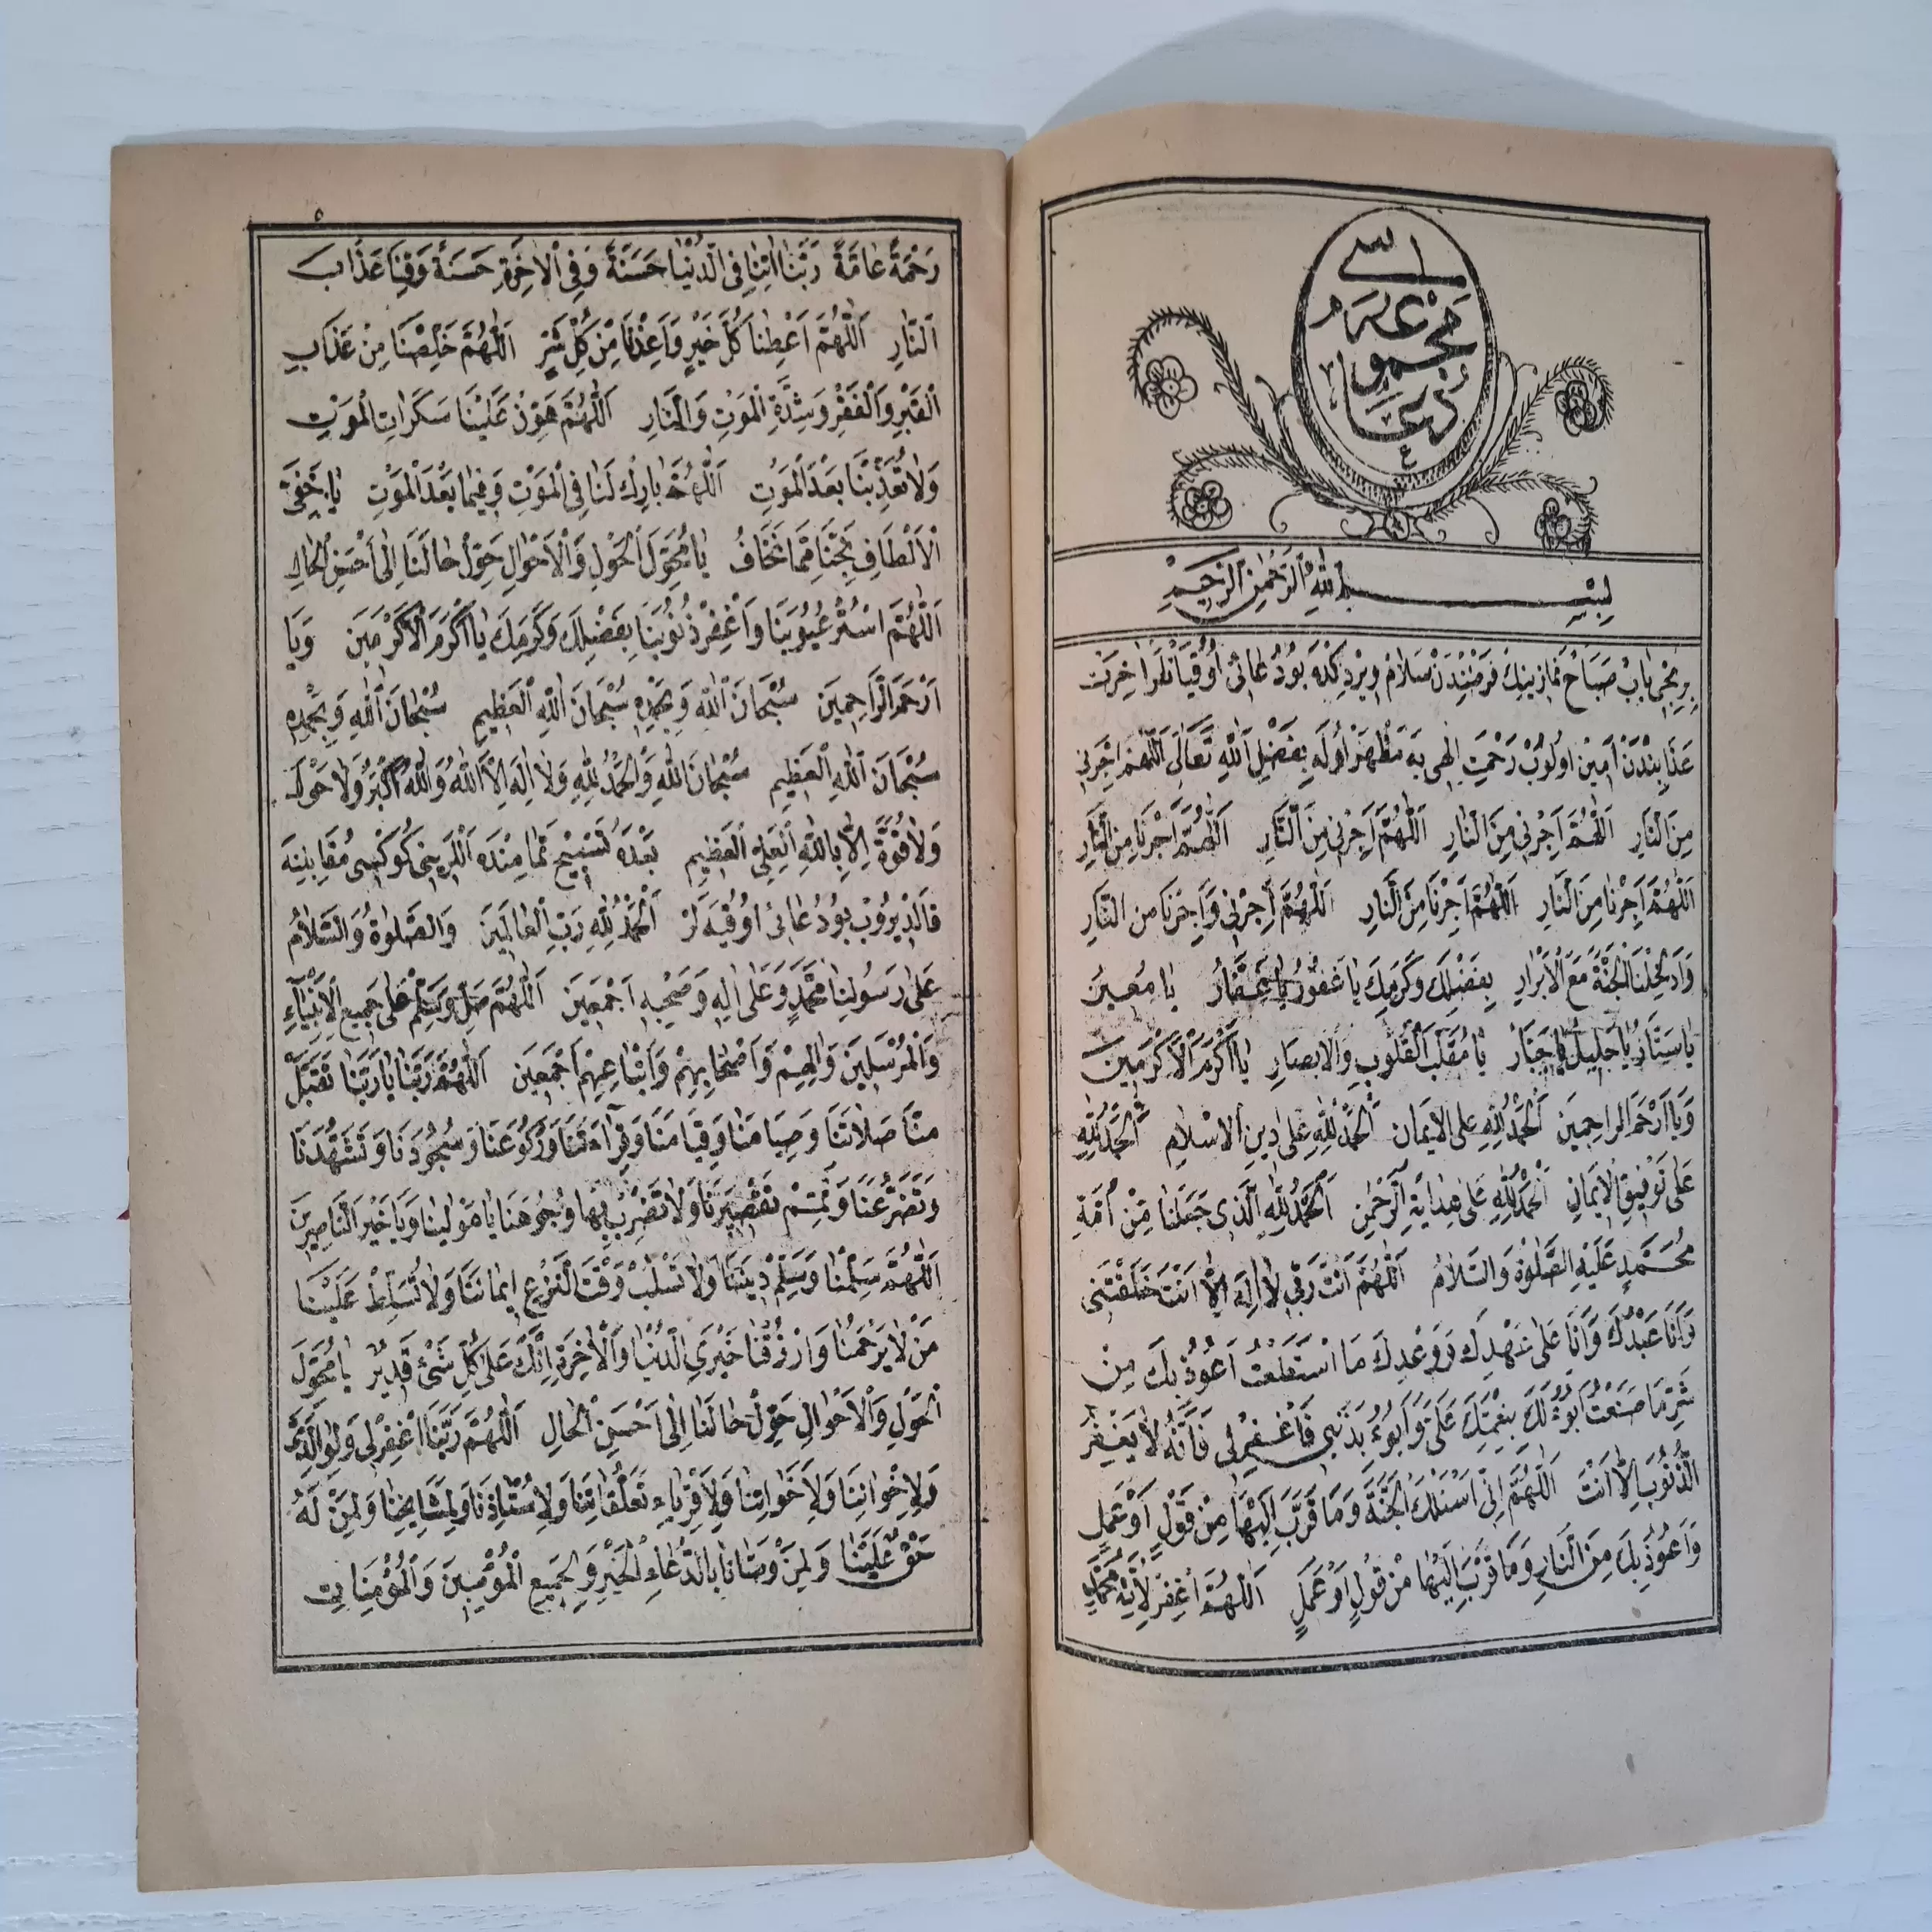 دُعَا
مَجْمُوعَهُ
سى
٤
بِسْمِ اللهِ الرَّحْمٰنِ الرَّحِيمِ
بِرِنْجِى بَابْ صَبَاحْ نَمَازِينِكْ فَرْضِنْدَنْ سَلَامْ وِيرْدِكْدَه بُو دُعَائِى اُوقُيَانْلَرْ اٰخِرَتْ
عَذَابِنْدَنْ اَمِينْ اُولُوبْ رَحْمَتِ اِلٰهِى يَه مَظْهَرْ اُولَه بِفَضْلِ اللهِ تَعَالٰى اَللّٰهُمَّ اَجِرْنِى
مِنَ النَّارِ اَللّٰهُمَّ اَجِرْنِى مِنَ النَّارِ اَللّٰهُمَّ اَجِرْنِى مِنَ النَّارِ اَللّٰهُمَّ اَجِرْنَا مِنَ النَّارِ
اَللّٰهُمَّ اَجِرْنَا مِنَ النَّارِ اَللّٰهُمَّ اَجِرْنَا مِنَ النَّارِ اَللّٰهُمَّ اَجِرْنِى وَاَجِرْنَا مِنَ النَّارِ
وَادْخِلْنَا الْجَنَّةَ مَعَ الْاَبْرَارِ بِفَضْلِكَ وَكَرَمِكَ يَا غَفُورُ يَا غَفَّارُ يَا مُعِينُ
يَا سَتَّارُ يَا جَلِيلُ يَا جَبَّارُ يَا مُقَلِّبَ الْقُلُوبِ وَالْاَبْصَارِ يَا اَكْرَمَ الْاَكْرَمِينَ
وَيَا اَرْحَمَ الرَّاحِمِينَ اَلْحَمْدُ لِلّٰهِ عَلَى الْاِيمَانِ اَلْحَمْدُ لِلّٰهِ عَلٰى دِينِ الْاِسْلَامِ اَلْحَمْدُ لِلّٰهِ
عَلٰى تَوْفِيقِ الْاِيمَانِ اَلْحَمْدُ لِلّٰهِ عَلٰى هِدَايَةِ الرَّحْمٰنِ اَلْحَمْدُ لِلّٰهِ الَّذِى جَعَلَنَا مِنْ اُمَّةِ
مُحَمَّدٍ عَلَيْهِ الصَّلٰوةُ وَالسَّلَامُ اَللّٰهُمَّ اَنْتَ رَبِّى لَا اِلٰهَ اِلَّا اَنْتَ خَلَقْتَنِى
وَاَنَا عَبْدُكَ وَاَنَا عَلٰى عَهْدِكَ وَوَعْدِكَ مَا اسْتَطَعْتُ اَعُوذُ بِكَ مِنْ
شَرِّ مَا صَنَعْتُ اَبُوءُ لَكَ بِنِعْمَتِكَ عَلَىَّ وَاَبُوءُ بِذَنْبِى فَاغْفِرْ لِى فَاِنَّهُ لَا يَغْفِرُ
الذُّنُوبَ اِلَّا اَنْتَ اَللّٰهُمَّ اِنِّى اَسْئَلُكَ الْجَنَّةَ وَمَا قَرَّبَ اِلَيْهَا مِنْ قَوْلٍ اَوْ عَمَلٍ
وَاَعُوذُ بِكَ مِنَ النَّارِ وَمَا قَرَّبَ اِلَيْهَا مِنْ قَوْلٍ اَوْ عَمَلٍ اَللّٰهُمَّ اغْفِرْ لِاُمَّةِ مُحَمَّدٍ
٥
رَحْمَةً عَامَّةً رَبَّنَا اٰتِنَا فِى الدُّنْيَا حَسَنَةً وَفِى الْاٰخِرَةِ حَسَنَةً وَقِنَا عَذَابَ
النَّارِ اَللّٰهُمَّ اَعْطِنَا كُلَّ خَيْرٍ وَاَعِذْنَا مِنْ كُلِّ شَرٍّ اَللّٰهُمَّ خَلِّصْنَا مِنْ عَذَابِ
الْقَبْرِ وَالْفَقْرِ وَشِدَّةِ الْمَوْتِ وَالنَّارِ اَللّٰهُمَّ هَوِّنْ عَلَيْنَا سَكَرَاتِ الْمَوْتِ
وَلَا تُعَذِّبْنَا بَعْدَ الْمَوْتِ اَللّٰهُمَّ بَارِكْ لَنَا فِى الْمَوْتِ وَفِيمَا بَعْدَ الْمَوْتِ يَا خَفِىَّ
الْاَلْطَافِ نَجِّنَا مِمَّا نَخَافُ يَا مُحَوِّلَ الْحَوْلِ وَالْاَحْوَالِ حَوِّلْ حَالَنَا اِلٰى اَحْسَنِ الْحَالِ
اَللّٰهُمَّ اسْتُرْ عُيُوبَنَا وَاغْفِرْ ذُنُوبَنَا بِفَضْلِكَ وَكَرَمِكَ يَا اَكْرَمَ الْاَكْرَمِينَ وَيَا
اَرْحَمَ الرَّاحِمِينَ سُبْحَانَ اللهِ وَبِحَمْدِهِ سُبْحَانَ اللهِ الْعَظِيمِ سُبْحَانَ اللهِ وَبِحَمْدِهِ
سُبْحَانَ اللهِ الْعَظِيمِ سُبْحَانَ اللهِ وَالْحَمْدُ لِلّٰهِ وَلَا اِلٰهَ اِلَّا اللهُ وَاللهُ اَكْبَرُ وَلَا حَوْلَ
وَلَا قُوَّةَ اِلَّا بِاللهِ الْعَلِىِّ الْعَظِيمِ بَعْدَهُ تَسْبِيحْ تَمَامِنْدَه اَللَّرِينِى كُوكْسِى مُقَابِلِينَه
قَالْدِيرُوبْ بُو دُعَائِى اُوقُيَه لَرْ اَلْحَمْدُ لِلّٰهِ رَبِّ الْعَالَمِينَ وَالصَّلٰوةُ وَالسَّلَامُ
عَلٰى رَسُولِنَا مُحَمَّدٍ وَعَلٰى اٰلِهِ وَصَحْبِهِ اَجْمَعِينَ اَللّٰهُمَّ صَلِّ وَسَلِّمْ عَلٰى جَمِيعِ الْاَنْبِيَاءِ
وَالْمُرْسَلِينَ وَاٰلِهِمْ وَاَصْحَابِهِمْ وَاَتْبَاعِهِمْ اَجْمَعِينَ اَللّٰهُمَّ رَبَّنَا يَا رَبَّنَا تَقَبَّلْ
مِنَّا صَلَاتَنَا وَصِيَامَنَا وَقِيَامَنَا وَقِرَاءَتَنَا وَرُكُوعَنَا وَسُجُودَنَا وَتَشَهُّدَنَا
وَتَضَرُّعَنَا وَتَمِّمْ تَقْصِيرَنَا وَلَا تَضْرِبْ بِهَا وُجُوهَنَا يَا مَوْلٰينَا وَيَا خَيْرَ النَّاصِرِينَ
اَللّٰهُمَّ سَلِّمْنَا وَسَلِّمْ دِينَنَا وَلَا تَسْلُبْ وَقْتَ النَّزْعِ اِيمَانَنَا وَلَا تُسَلِّطْ عَلَيْنَا
مَنْ لَا يَرْحَمُنَا وَارْزُقْنَا خَيْرَىِ الدُّنْيَا وَالْاٰخِرَةِ اِنَّكَ عَلٰى كُلِّ شَىْءٍ قَدِيرٌ يَا مُحَوِّلَ
الْحَوْلِ وَالْاَحْوَالِ حَوِّلْ حَالَنَا اِلٰى اَحْسَنِ الْحَالِ اَللّٰهُمَّ رَبَّنَا اغْفِرْ لِى وَلِوَالِدَىَّ
وَلِاِخْوَانِنَا وَلِاَخَوَاتِنَا وَلِاَقْرِبَاءِ تَعَلُّقَاتِنَا وَلِاُسْتَاذِنَا وَلِمَشَايِخِنَا وَلِمَنْ لَهُ
حَقٌّ عَلَيْنَا وَلِمَنْ وَصَّانَا بِالدُّعَاءِ الْخَيْرِ وَلِجَمِيعِ الْمُؤْمِنِينَ وَالْمُؤْمِنَاتِ